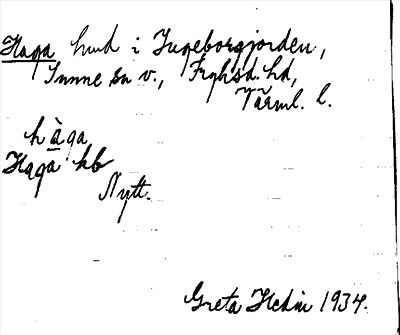 Haga hmd i Ingeborgjorden,
Sunne sn v., Fryksd. hd,
Värml. l.
hàga
Haga kb
Nytt.
Greta Hedin 1934.